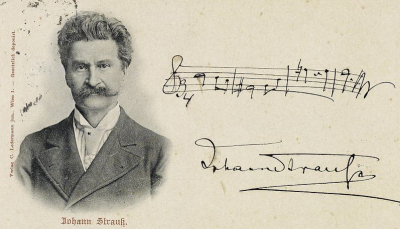 Verlag C. Ledermann jun. Wien I. — Gesetzlich deponirt.
Johann Strauß
Johann Strauß.